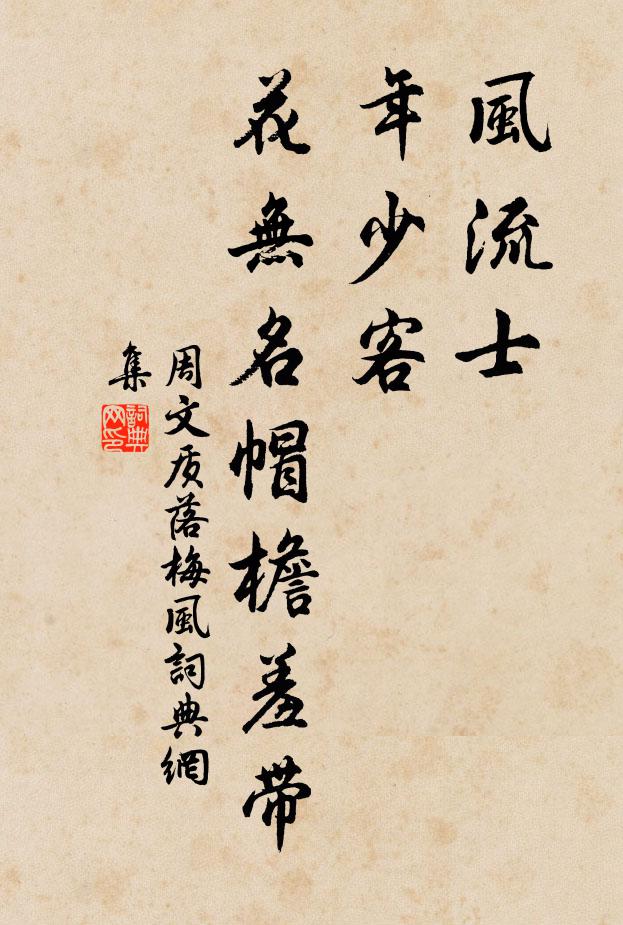 風流士
年少客
花無名帽檐羞带
周文质落梅風詞典網
集
詞典网印